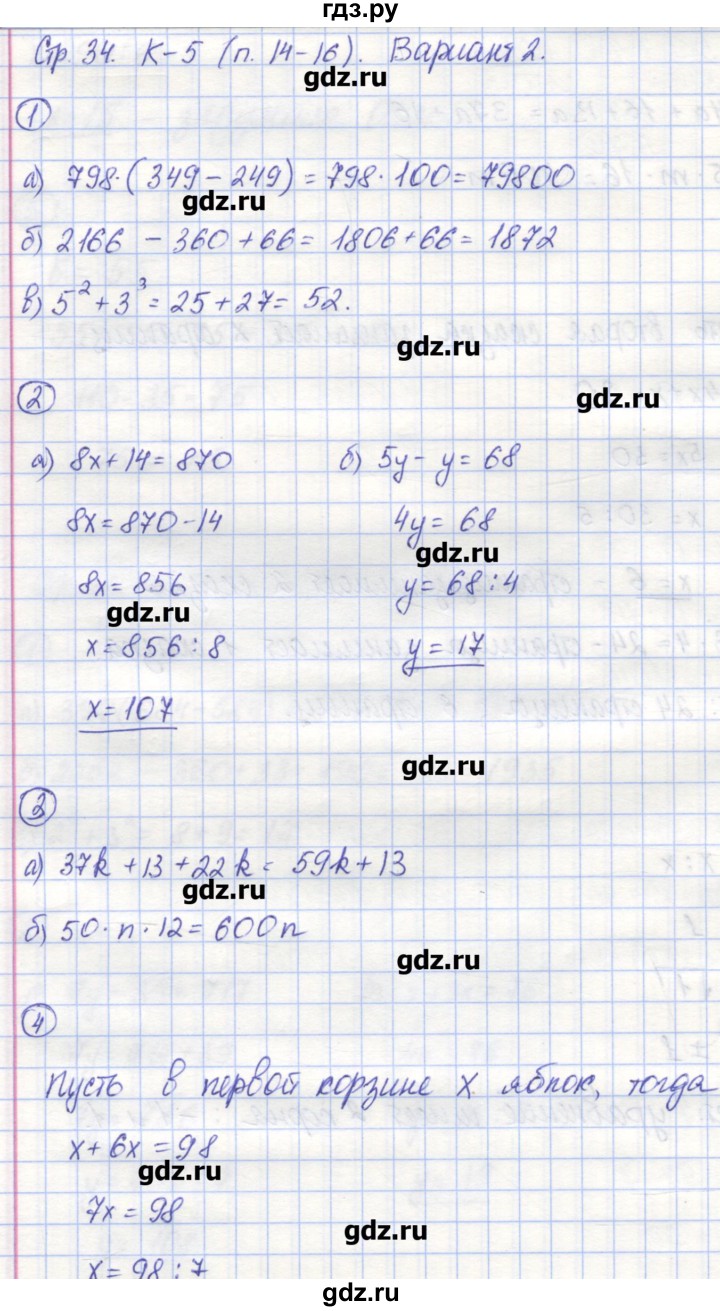 гдз.ру
Стр. 34. К-5 (п. 14-16). Вариант 2.
gdz.ru
1
а) 798·(349-249)=798·100=79800
gdz.ru
б) 2166 - 360 + 66 = 1806 + 66 = 1872
в) 5² + 3³ = 25 + 27 = 52.
gdz.ru
2
gdz.ru
а) 8x+14=870 б) 5y - y = 68
8x=870-14 4y = 68
gdz.ru
8x=856 y=68:4
gdz.ru
x=856:8 y=17
x=107
gdz.ru
3
а) 37k +13 +22k = 59k+13
gdz.ru
б) 50·n·12=600n
gdz.ru
4
Пусть в первой корзине x яблок, тогда
x+6x=98
gdz.ru
7x=98
gdz.ru
x=98:7
gdz.ru